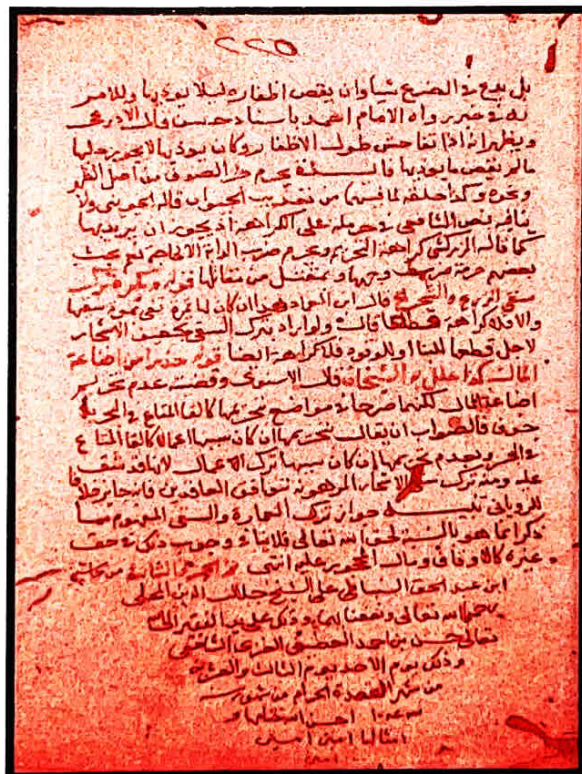 بل يدع في الضرع شيأ وان يقص اظفاره ليلا يوذيها وللامر
به في خبر رواه الامام احمد باسناد حسن قال الاذرعي
ويظهر انه اذا تفاحش طول الاظفار وكان يوذيها لا يجوز حلبها
مالم يقص ما يوذيها قال ويحرم جز الصوف من اصل الظهر
ونحوه وكذا حلقه لما فيهما من تعذيب الحيوان قاله الجويني ولا
ينافيه نص الشافعي في حرمله على الكراهة اذ يجوز ان يريد بها
كما قاله الزركشي كراهة التحريم ويحرم
سقي الزرع والشجر قال ابن العماد هذا ان كان له ثمرة تفي بمونة سقيها
والا فلا كراهة قطعا قال ولو اراد بترك السقي تجفيف الاشجار
لاجل قطعها للبنا او للوقود فلا كراهة ايضا قوله حذرا من اضاعة
المال كذا علل به الشيخان قال الاسنوي وقضيته عدم تحريم
اضاعة المال لكنهما صرحا في مواضع بتحريمها كالقا المتاع في البحر بلا
خوف فالصواب ان يقال بتحريمها ان كان سببها اعمالا كالقا المتاع
في البحر وبعدم تحريمها ان كان سببها ترك الاعمال لانها قد تشق
عليه ومنه ترك سقي الاشجار المرهونة بتوافق العاقدين فانه جايز خلافا
للروياني تنبيه جواز ترك العمارة والسقي المفهوم مما
ذكر انما هو بالنسبة لحق الله تعالى فلا ينافي وجوب ذلك في حق
غيره كالاوقاف ومال المحجور عليه انتهى تم الجزء الثاني من حاشية
ابن عبد الحق السنباطي على الشيخ جلال الدين المحلي
رحمهما الله تعالى ونفعنا بهما وذلك على يد الفقير الى الله
تعالى حسن بن احمد الشافعي
وذلك يوم الاحد يوم الثالث والعشرين
من شهر القعدة الحرام من شهور
احسن الله ختامها
امين امين
امين